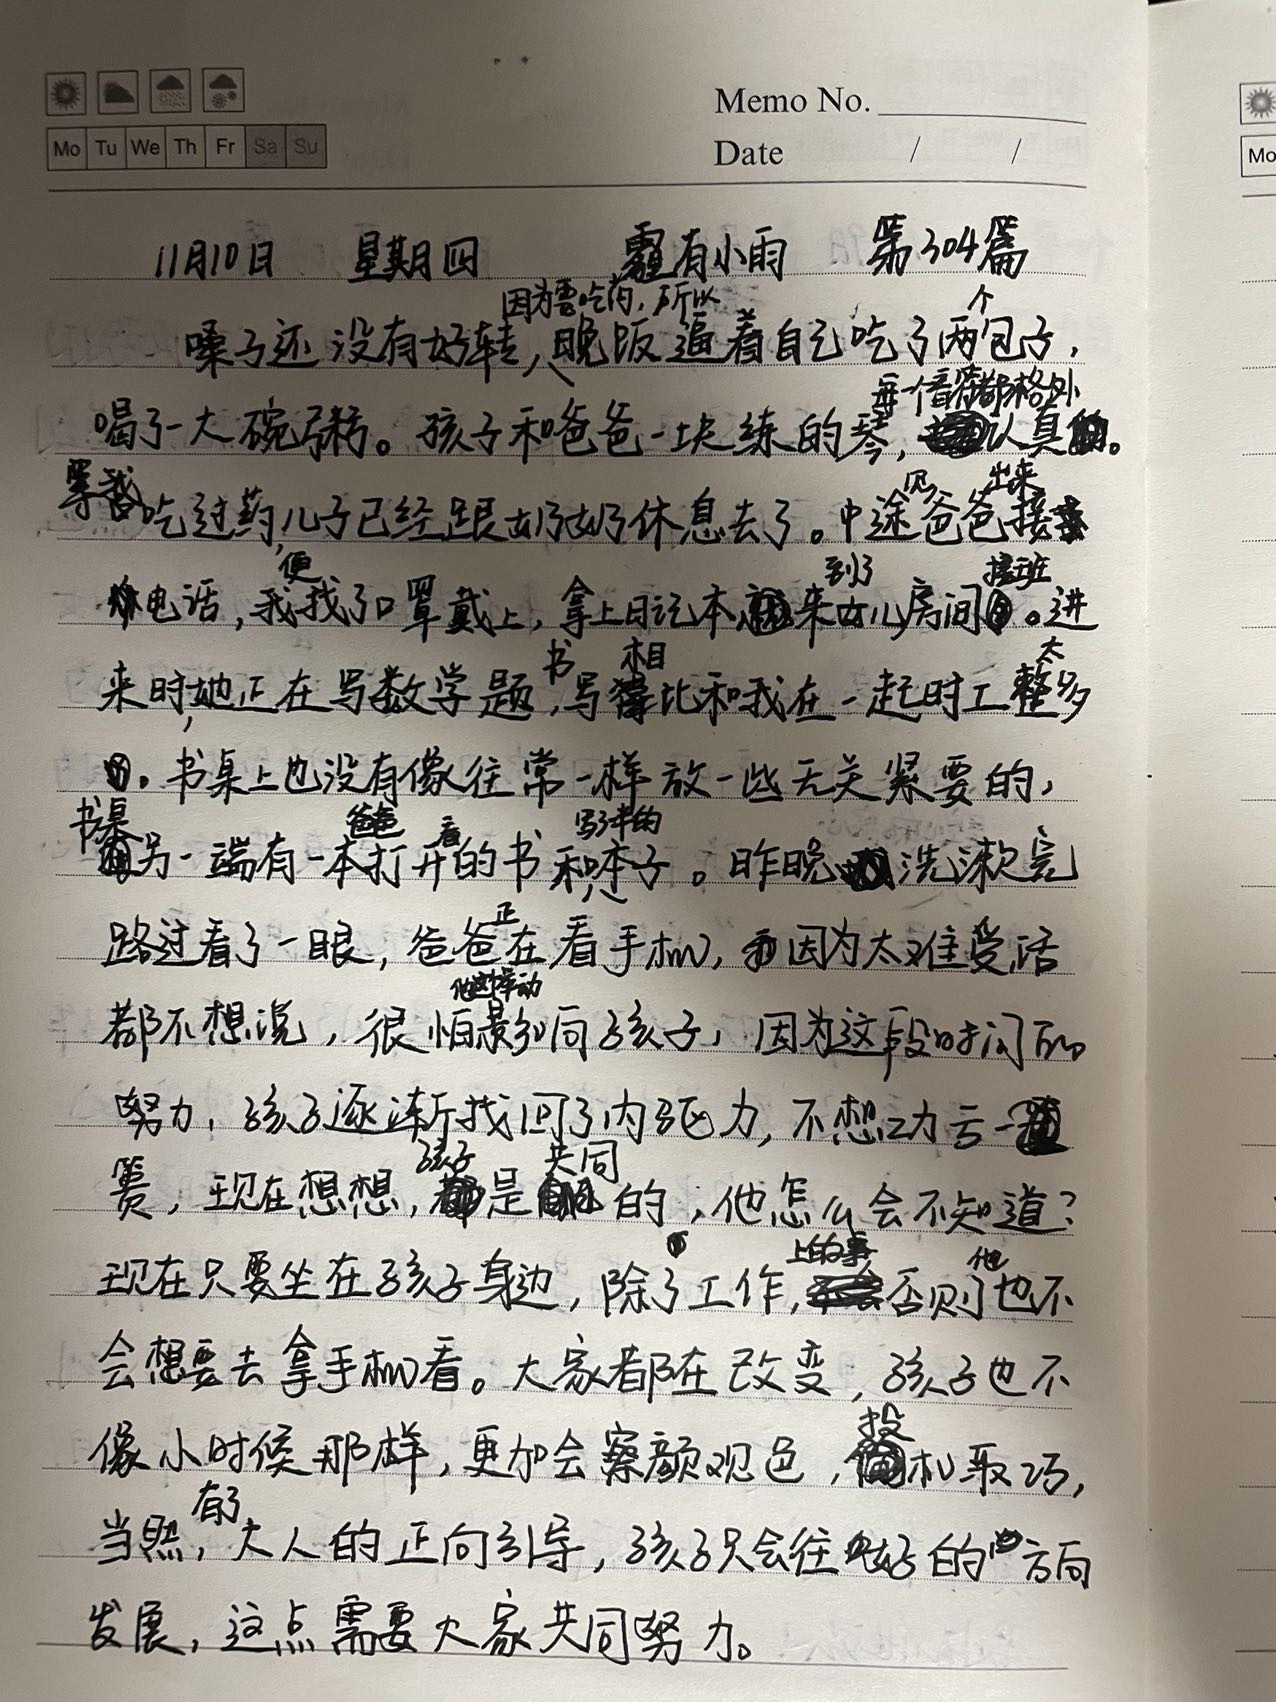 Memo No.
Mo Tu We Th Fr Sa Su
Date / /
Mo
11月10日 星期四 霾有小雨 第304篇
因为要吃药,所以 个
嗓子还没有好转,晚饭逼着自己吃了两包子,
每一个音符都格外
喝了一大碗粥。孩子和爸爸一块练的琴,认真。
等我 见 出来
吃过药,儿子已经跟奶奶休息去了。中途爸爸接
便 到了 接班
电话,我找了口罩戴上,拿上日记本来女儿房间。进
书 相 太
来时,她正在写数学题,写比和我在一起时工整多
。书桌上也没有像往常一样放一些无关紧要的,
书桌 爸爸 看 写了半的
另一端有一本打开的书和本子。昨晚洗漱完
正
路过看了一眼,爸爸在看手机,因为太难受话
他的举动
都不想说,很怕影响向孩子,因为这段时间的
努力,孩子逐渐找回了内驱力,不想功亏一
孩子 共同
篑,现在想想,是的,他怎么会不知道?
上的事 他
现在只要坐在孩子身边,除了工作,否则也不
会想要去拿手机看。大家都在改变,孩子也不
投
像小时候那样,更加会察颜观色,机取巧,
有了
当然,大人的正向引导,孩子只会往好的方向
发展,这点需要大家共同努力。